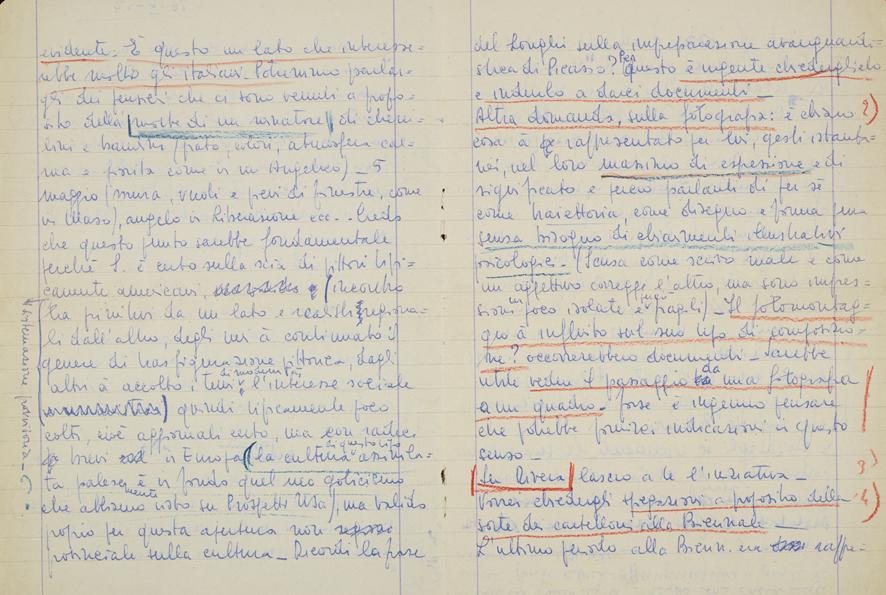 evidente. È questo un lato che interesse=
rebbe molto gli italiani. Potremmo parlar=
gli dei pensieri che ci sono venuti a propo=
sito della morte di un minatore di
bini e bambini (prato, colori, atmosfera cal=
ma e fiorita come in un Angelico) — 5
maggio (mura, vuoti e pieni di finestre, come
in Maso), angelo in Liberazione ecc.. Credo
che questo punto sarebbe fondamentale
perché S. è certo sulla scia di pittori tipi=
camente americani, (incontro
tra primitivi da un lato e realisti regiona=
li dall'altro, degli uni à continuato il
genere di trasfigurazione pittorica, dagli
altri à accolto i temi di modernità e l'interesse sociale
quindi tipicamente poco
colti, cioè aggiornati certo, ma con radici
brevi in Europa (la cultura di questo tipo assimila=
ta palesemente è in fondo quel neo goticismo
che abbiamo visto su Prospetti USA), ma valido
proprio per questa apertura non
provinciale sulla cultura — Ricordi la frase
sistemazione provvisoria —
del Longhi sulla impreparazione avanguardi=
stica di Picasso? Per questo è urgente chiederglielo
e indurlo a darci documenti —
Altra domanda, sulla fotografia: è chiaro 2)
cosa à rappresentato per lui, gesti istanta=
nei, nel loro massimo di espressione e di
significato e perciò parlanti di per sé
come traiettoria, come disegno e forma pura
senza bisogno di chiarimenti illustrativi
psicologici. (Scusa come scrivo male e come
un aggettivo corregge l'altro, ma sono impres=
sioni un poco isolate e fragili) — Il fotomontag=
gio à influito sul suo tipo di composizio=
ne? occorrerebbero documenti — Sarebbe
utile vedere il passaggio da una fotografia
a un quadro — forse è ingenuo pensare
che potrebbe fornirci indicazioni in questo
senso —
Su Rivera lascio a te l'iniziativa — 3)
Vorrei chiedergli spiegazioni a proposito della 4)
sorte dei cartelloni alla Biennale —
L'ultimo periodo alla Bienn. era rappre=